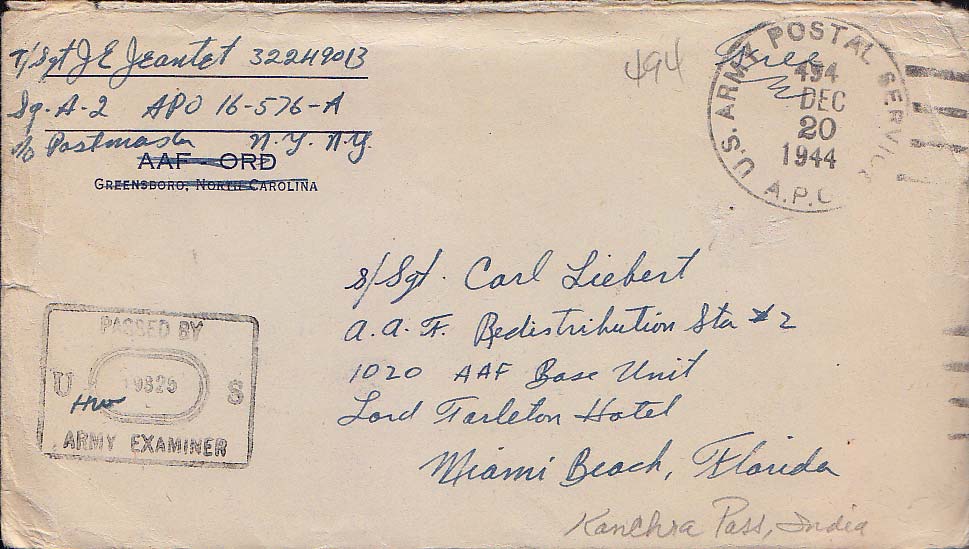 T/Sgt J E Jeantet 32249013
Sq. A-2 APO 16-576-A
c/o Postmaster N.Y. N.Y.
AAF - ORD
GREENSBORO, NORTH CAROLINA
494
Free
U.S. ARMY POSTAL SERVICE
494
DEC
20
1944
A.P.O
S/Sgt. Carl Liebert
A.A.F. Redistribution Sta #2
1020 AAF Base Unit
Lord Tarleton Hotel
Miami Beach, Florida
PASSED BY
U 19825 S
HW
ARMY EXAMINER
Kanchra Pass, India